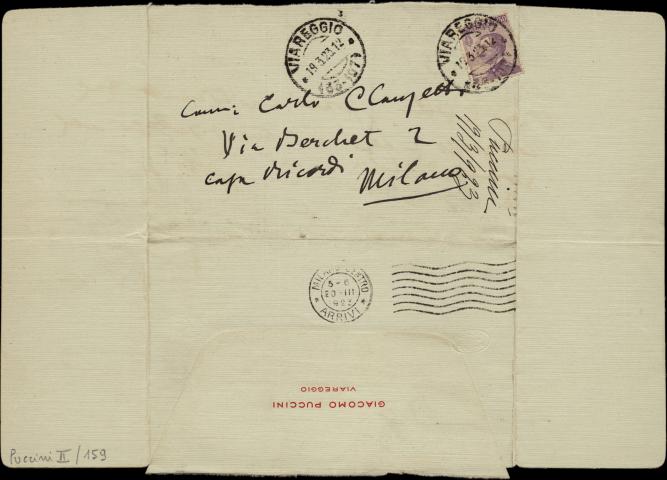 3
VIAREGGIO
19.3.23.12
VIAREGGIO
19.3.23.12
Comm: Carlo Clausetti
Via Berchet 2
casa Ricordi
Milano
Puccini
19/3/923
MILANO CENTRO
5-6
20-III
923
ARRIVI
GIACOMO PUCCINI
VIAREGGIO
Puccini II/159